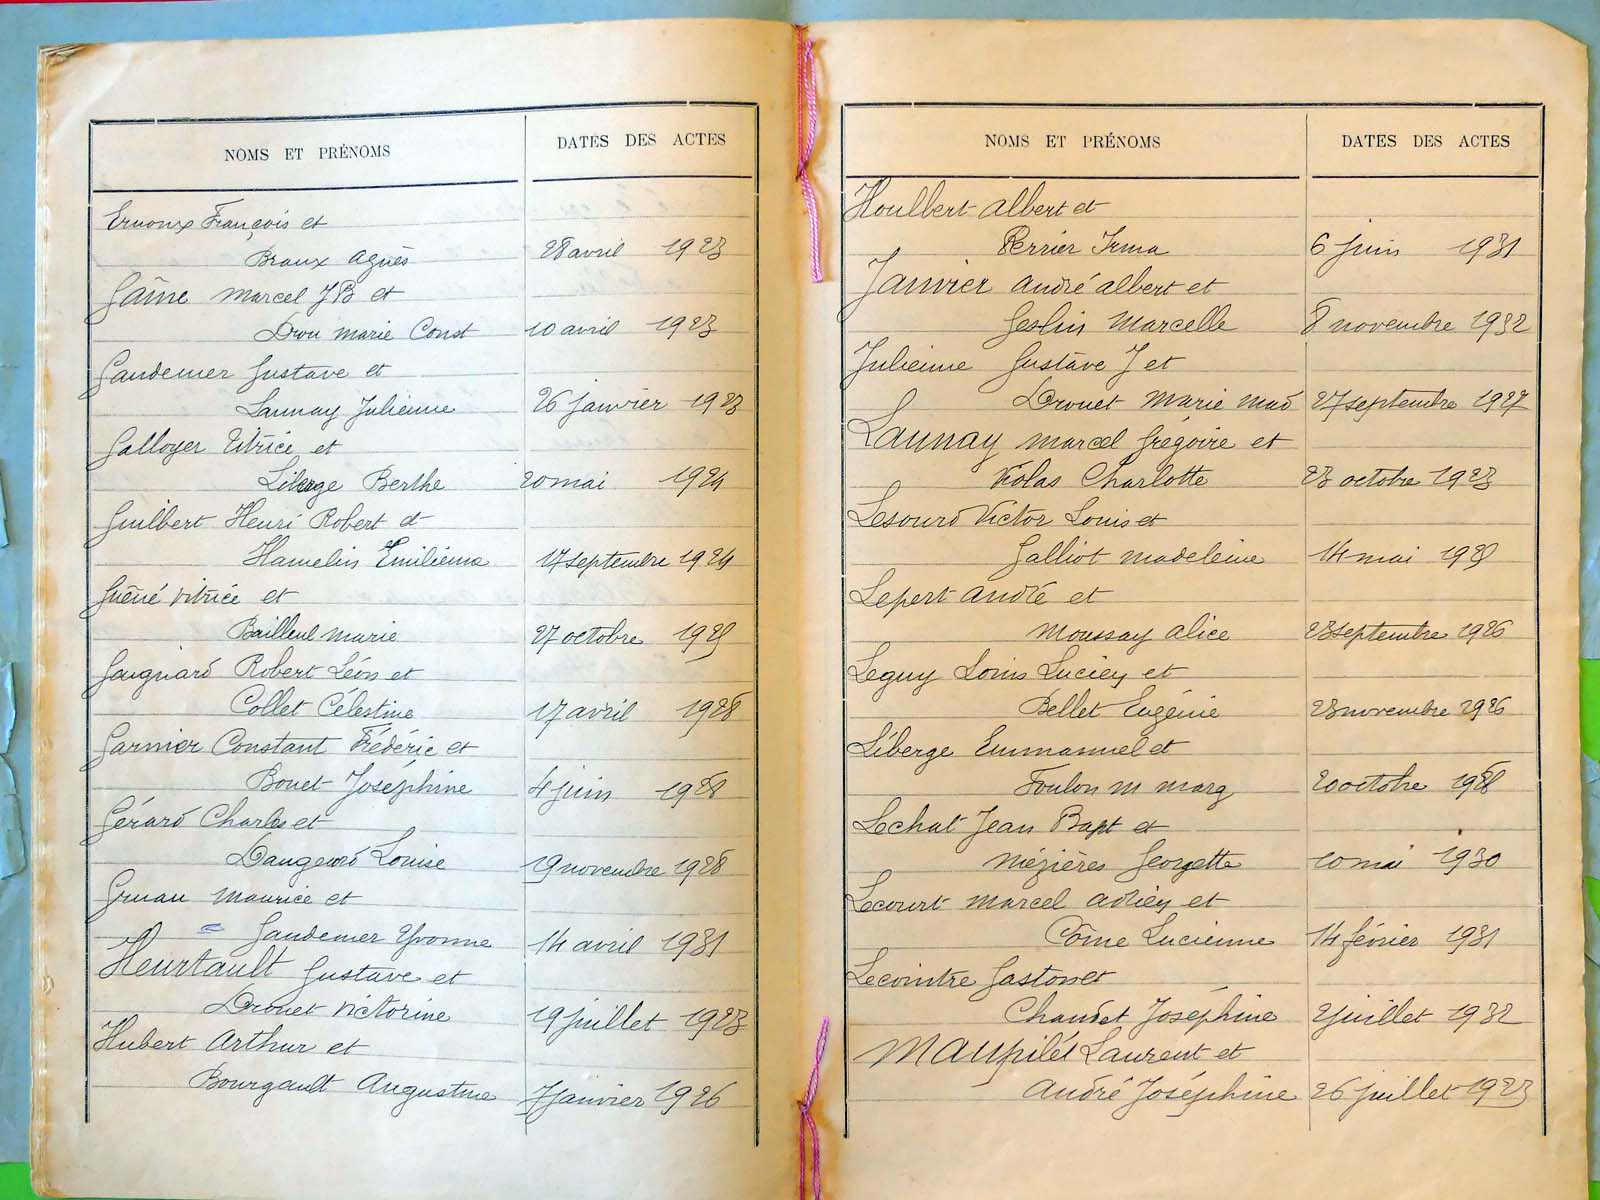 NOMS ET PRÉNOMS DATES DES ACTES
Ernoux François et
Braux Agnès 28 avril 1923
Gâine Marcel JB et
Drou Marie Const 10 avril 1923
Gandemer Gustave et
Launay Julienne 26 janvier 1923
Galloyer Vitrice et
Liberge Berthe 20 mai 1924
Guilbert Henri Robert et
Hamelin Emilienne 17 septembre 1924
Guéné Vitrice et
Bailleul Marie 27 octobre 1925
Gougnard Robert Léon et
Collet Célestine 17 avril 1928
Garnier Constant Frédéric et
Bouet Joséphine 4 juin 1928
Gérard Charles et
Daugeard Louise 19 novembre 1928
Gruau Maurice et
Gandemer Yvonne 14 avril 1931
Heurtault Gustave et
Drouet Victorine 19 juillet 1923
Hubert Arthur et
Bourgault Augustine 7 janvier 1926
NOMS ET PRÉNOMS DATES DES ACTES
Houlbert Albert et
Perrier Irma 6 juin 1931
Janvier André Albert et
Geslin Marcelle 8 novembre 1932
Julienne Gustave J et
Drouet Marie Mad 27 septembre 1927
Launay Marcel Grégoire et
Violas Charlotte 23 octobre 1923
Lesourd Victor Louis et
Galliot Madeleine 14 mai 1925
Lepert André et
Moussay Alice 23 septembre 1926
Leguy Louis Lucien et
Bellet Eugénie 23 novembre 1926
Liberge Emmanuel et
Foulon M Marg 20 octobre 1928
Lechat Jean Bapt et
Mézières Georgette 10 mai 1930
Lecourt Marcel Adrien et
Côme Lucienne 14 février 1931
Lecointre Gaston et
Chaudet Joséphine 2 juillet 1932
Maupilé Laurent et
André Joséphine 26 juillet 1923